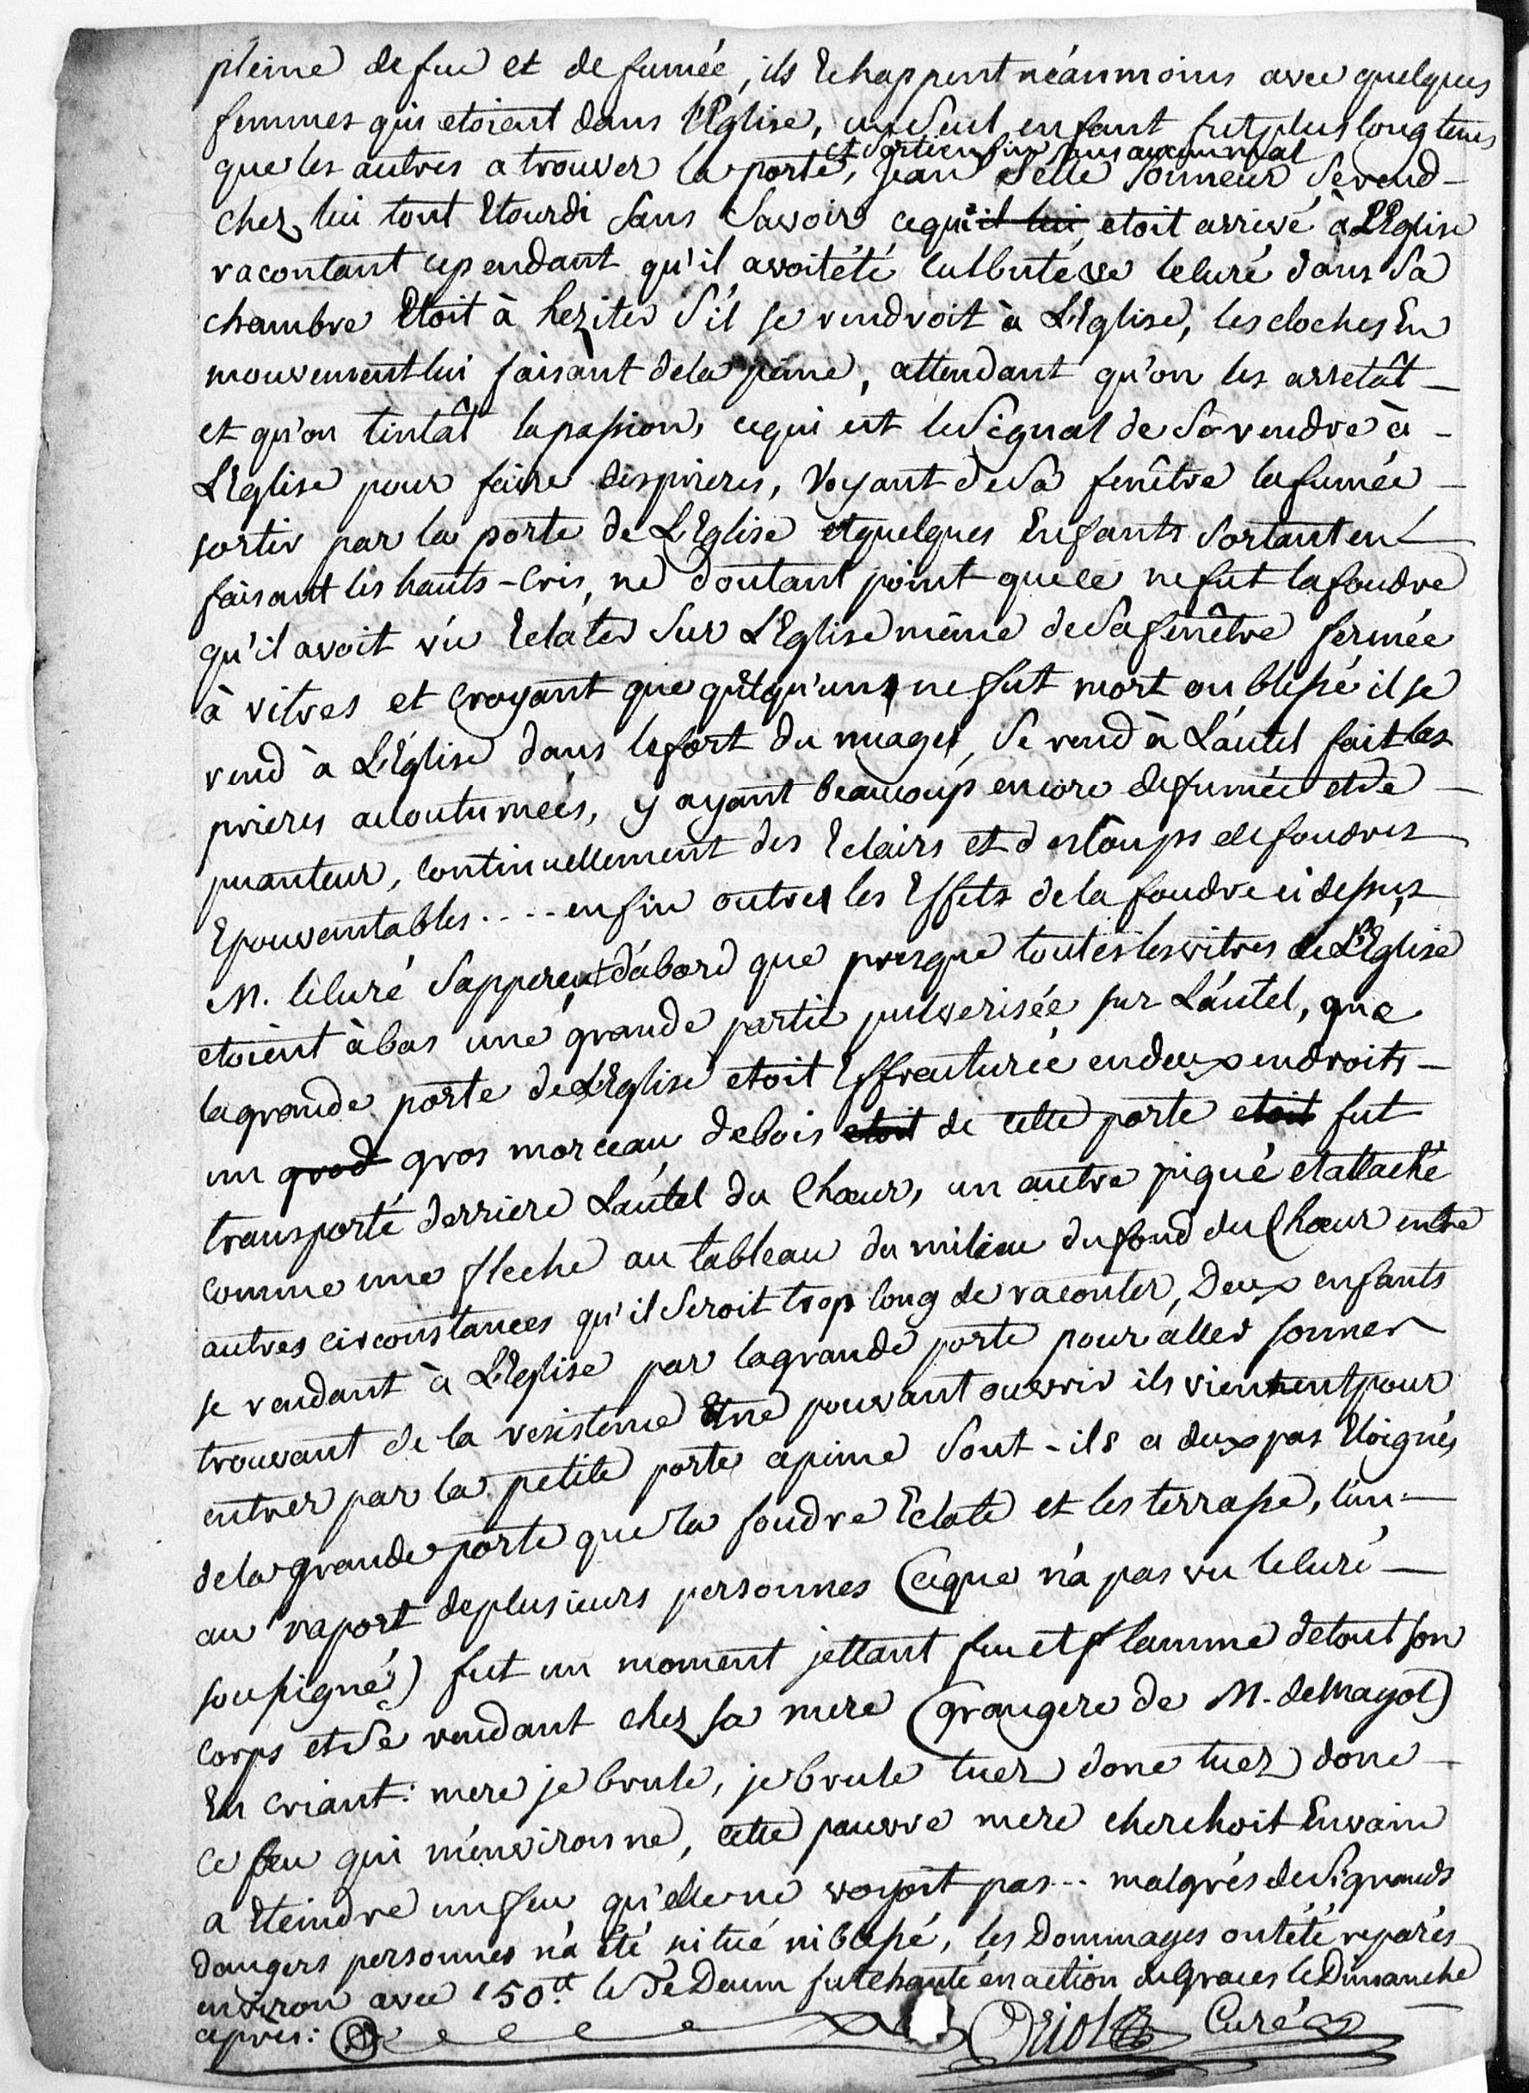 pleine de feu et de fumée, ils Echappent néanmoins avec quelques
femmes qui etoient dans l'Eglise, un Seul enfant fut plus longtems
et Sortit enfin sans aucun mal
que les autres a trouver la porte, Jean Selle Sonneur Se rend
chez lui tout Etourdi Sans Savoir ce qui il lui etoit arrivé à L'Eglise
racontant cependant qu'il avoit été culbuté le Curé dans Sa
chambre Etoit à heziter S'il se rendroit à L'Eglise, les cloches En
mouvement lui faisant de la peine, attendant qu'on les arretât
et qu'on tintât la passion, ce qui est le Signal de Se rendre à
L'Eglise pour faire des prieres, Voyant de Sa fenêtre la fumée
sortir par la porte de L'Eglise et quelques Enfants Sortant en
faisant les hauts-Cris, ne doutant point que ce ne fut la foudre
qu'il avoit vu Eclater Sur L'Eglise même de Sa fenêtre fermée
à vitres et Croyant que quelqu'un ne fut mort ou blessé il se
rend à L'Eglise dans le fort du nuage, Se rend à L'autel fait les
prieres acoutumées, y ayant beaucoup encore de fumée et de
puanteur, Continuellement des Eclairs et des Coups de foudres
Epouventables.... enfin outre les Effets de la foudre ci dessus
M. le Curé S'apperçut d'abord que presque toutes les vitres de L'Eglise
etoient à bas une grande partie pulverisée sur L'autel, que
la grande porte de L'Eglise etoit Effracturée en deux endroits
un grod gros morceau de bois etoit de cette porte etoit fut
transporté derriere L'autel du Chœur, un autre piqué et attaché
comme une fleche au tableau du milieu du fond du Chœur entre
autres circonstances qu'il Seroit trop long de raconter, Deux enfants
se rendant à L'Eglise par la grande porte pour aller sonner
trouvant de la resistence Et ne pouvant ouvrir ils viennent pour
entrer par la petite porte a peine Sont-ils a deux pas Eloignés
de la grande porte que la foudre Eclate et les terrasse, l'un
au raport de plusieurs personnes (ce que n'a pas vu le Curé
soussigné) fut un moment jettant feu et flamme de tout son
Corps et Se rendant chez sa mere (grangere de M. de Mayol)
En criant: mere je brule, je brule tuez donc tuez donc
ce feu qui m'environne, cette pauvre mere cherchoit En vain
a Eteindre un feu qu'elle ne voyoit pas... malgrés de Si grands
dangers personnes n'a été ni tué ni blessé, les Dommages ont été reparés
environ avec 150.tt le Te Deum fut chanté en action de Graces le Dimanche
apres: Oriol Curé